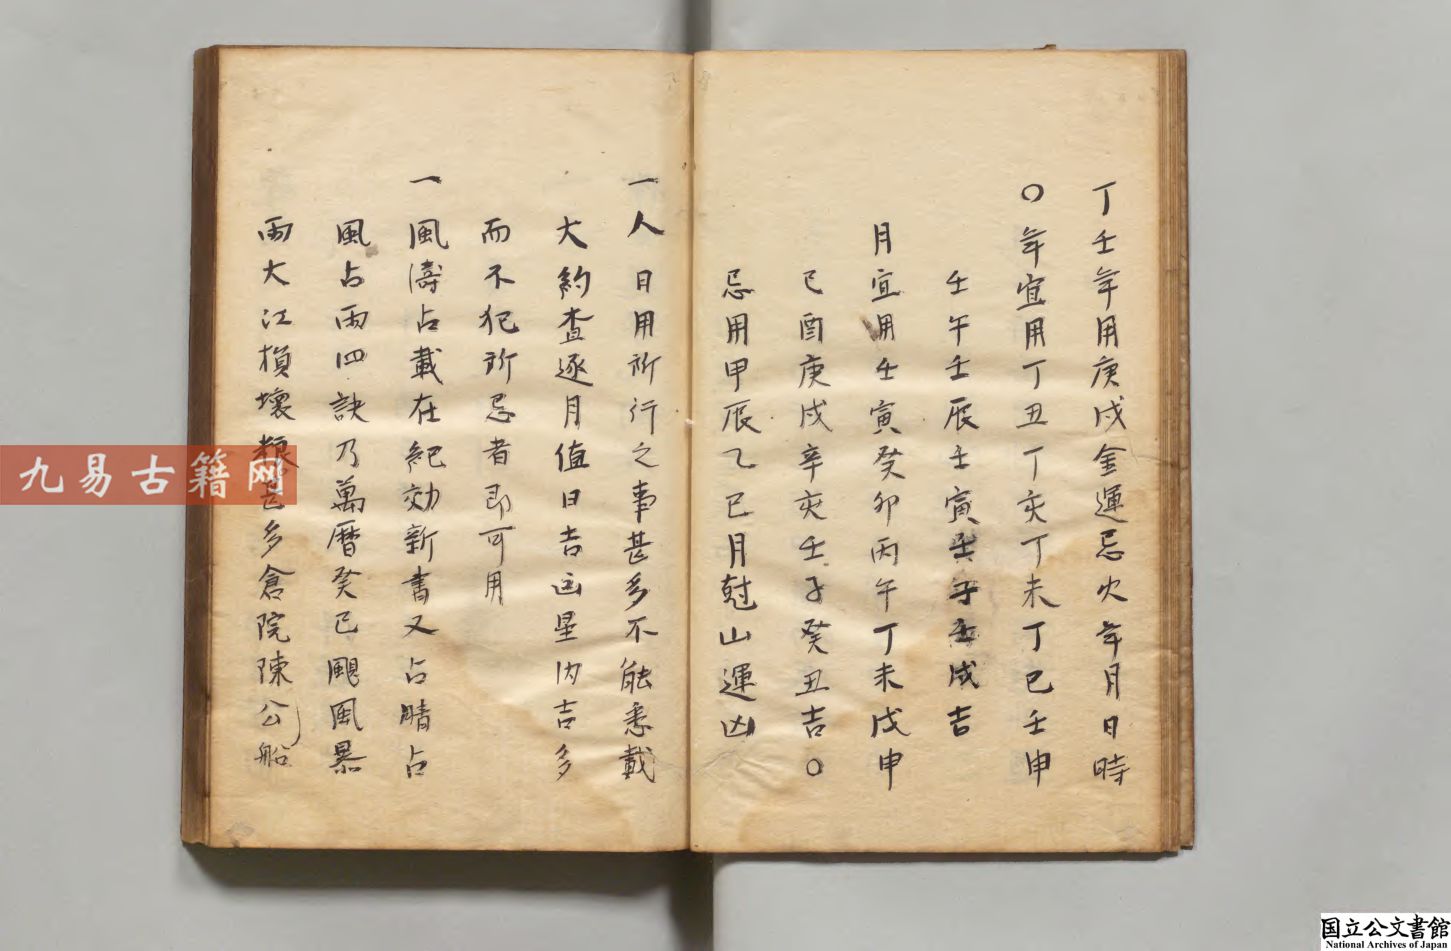 丁壬年用庚戌金運忌火年月日時
〇年宜用丁丑丁亥丁未丁巳壬申
壬午壬辰壬寅壬子壬戌吉
月宜用壬寅癸卯丙午丁未戊申
己酉庚戌辛亥壬子癸丑吉〇
忌用甲辰乙巳月尅山運凶
一人日用所行之事甚多不能悉載
大約查逐月值日吉凶星內吉多
而不犯所忌者即可用
一風濤占載在紀効新書又占晴占
風占雨四訣乃萬曆癸巳颶風暴
雨大江損壞糧甚多倉院陳公船
九易古籍网
国立公文書館
National Archives of Japan